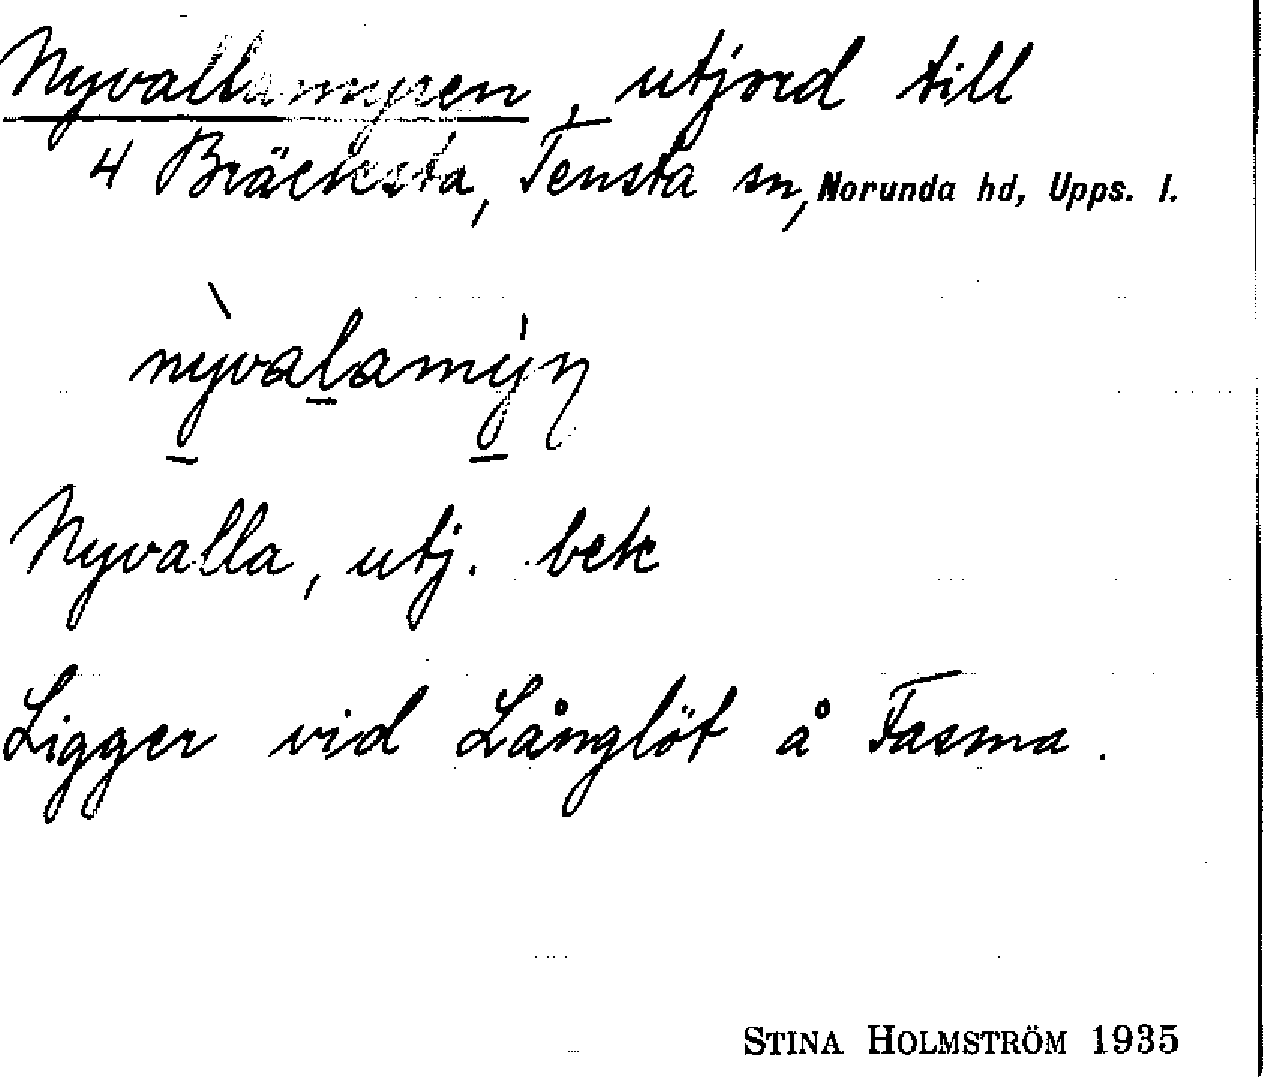 Nyvallamyren, utjord till
4 Bräcksta, Tensta sn, Norunda hd, Upps. l.
nỳvalamýn
Nyvalla, utj. bek
Ligger vid Långlöt å Fasma.
STINA HOLMSTRÖM 1935